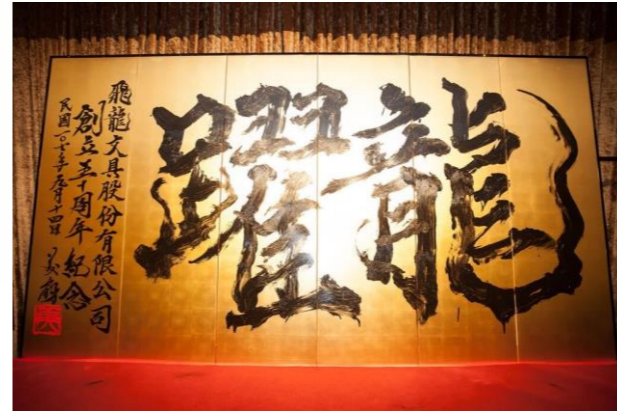 龍躍
飛龍文具股份有限公司
創立五十周年紀念
民國一〇七年九月十四日